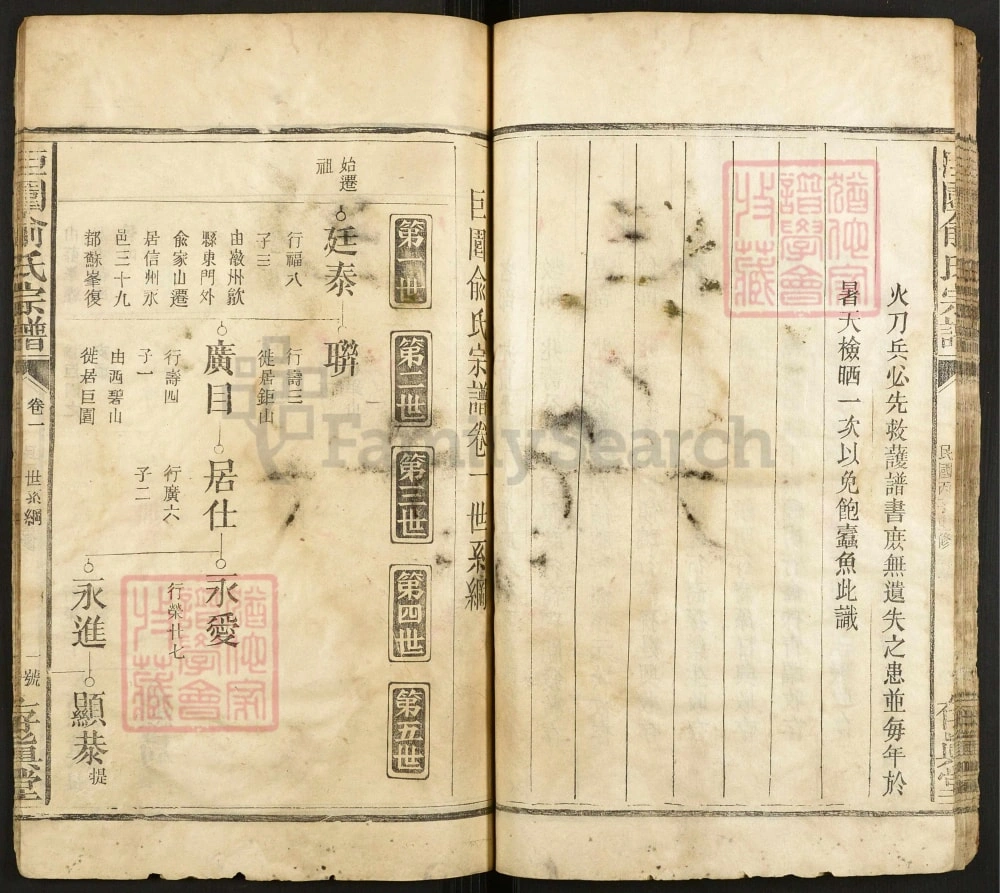 火刀兵必先救護譜書庻無遺失之患並每年於
暑天檢晒一次以免飽蠧魚此識
民國
猶他家譜學會收藏
巨園俞氏宗譜卷一世系綱
第一世
第二世
第三世
第四世
第五世
始遷祖
廷泰
行福八
子三
由徽州歙
縣東門外
俞家山遷
居信州永
邑三十九
都蘇峯復
聨
行壽三
徙居鉅山
廣目
行壽四
子一
由西碧山
徙居巨園
居仕
行廣六
子二
永愛
行榮廿七
永進
顯恭
提
巨園俞氏宗譜
卷一
世系綱
一號
猶他家譜學會收藏
FamilySearch